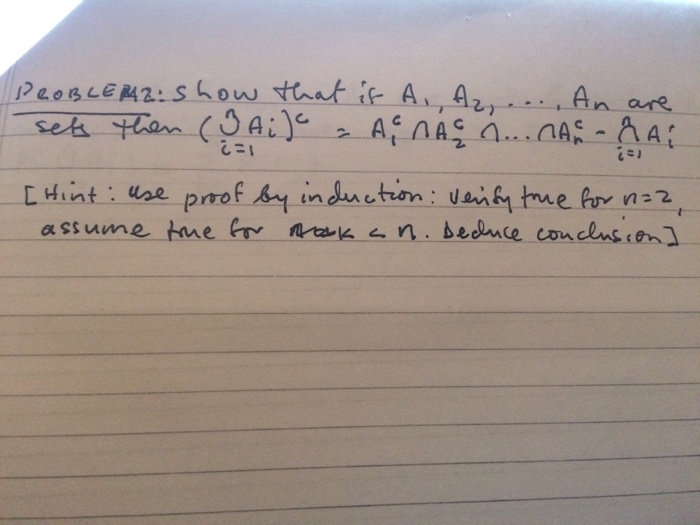 PROBLEM 2: Show that if A₁, A₂, ..., Aₙ are
sets then (⋃ᵢ₌₁ⁿ Aᵢ)ᶜ = A₁ᶜ ∩ A₂ᶜ ∩ ... ∩ Aₙᶜ = ⋂ᵢ₌₁ⁿ Aᵢᶜ
[Hint: Use proof by induction: Verify true for n=2,
assume true for k < n. Deduce conclusion]